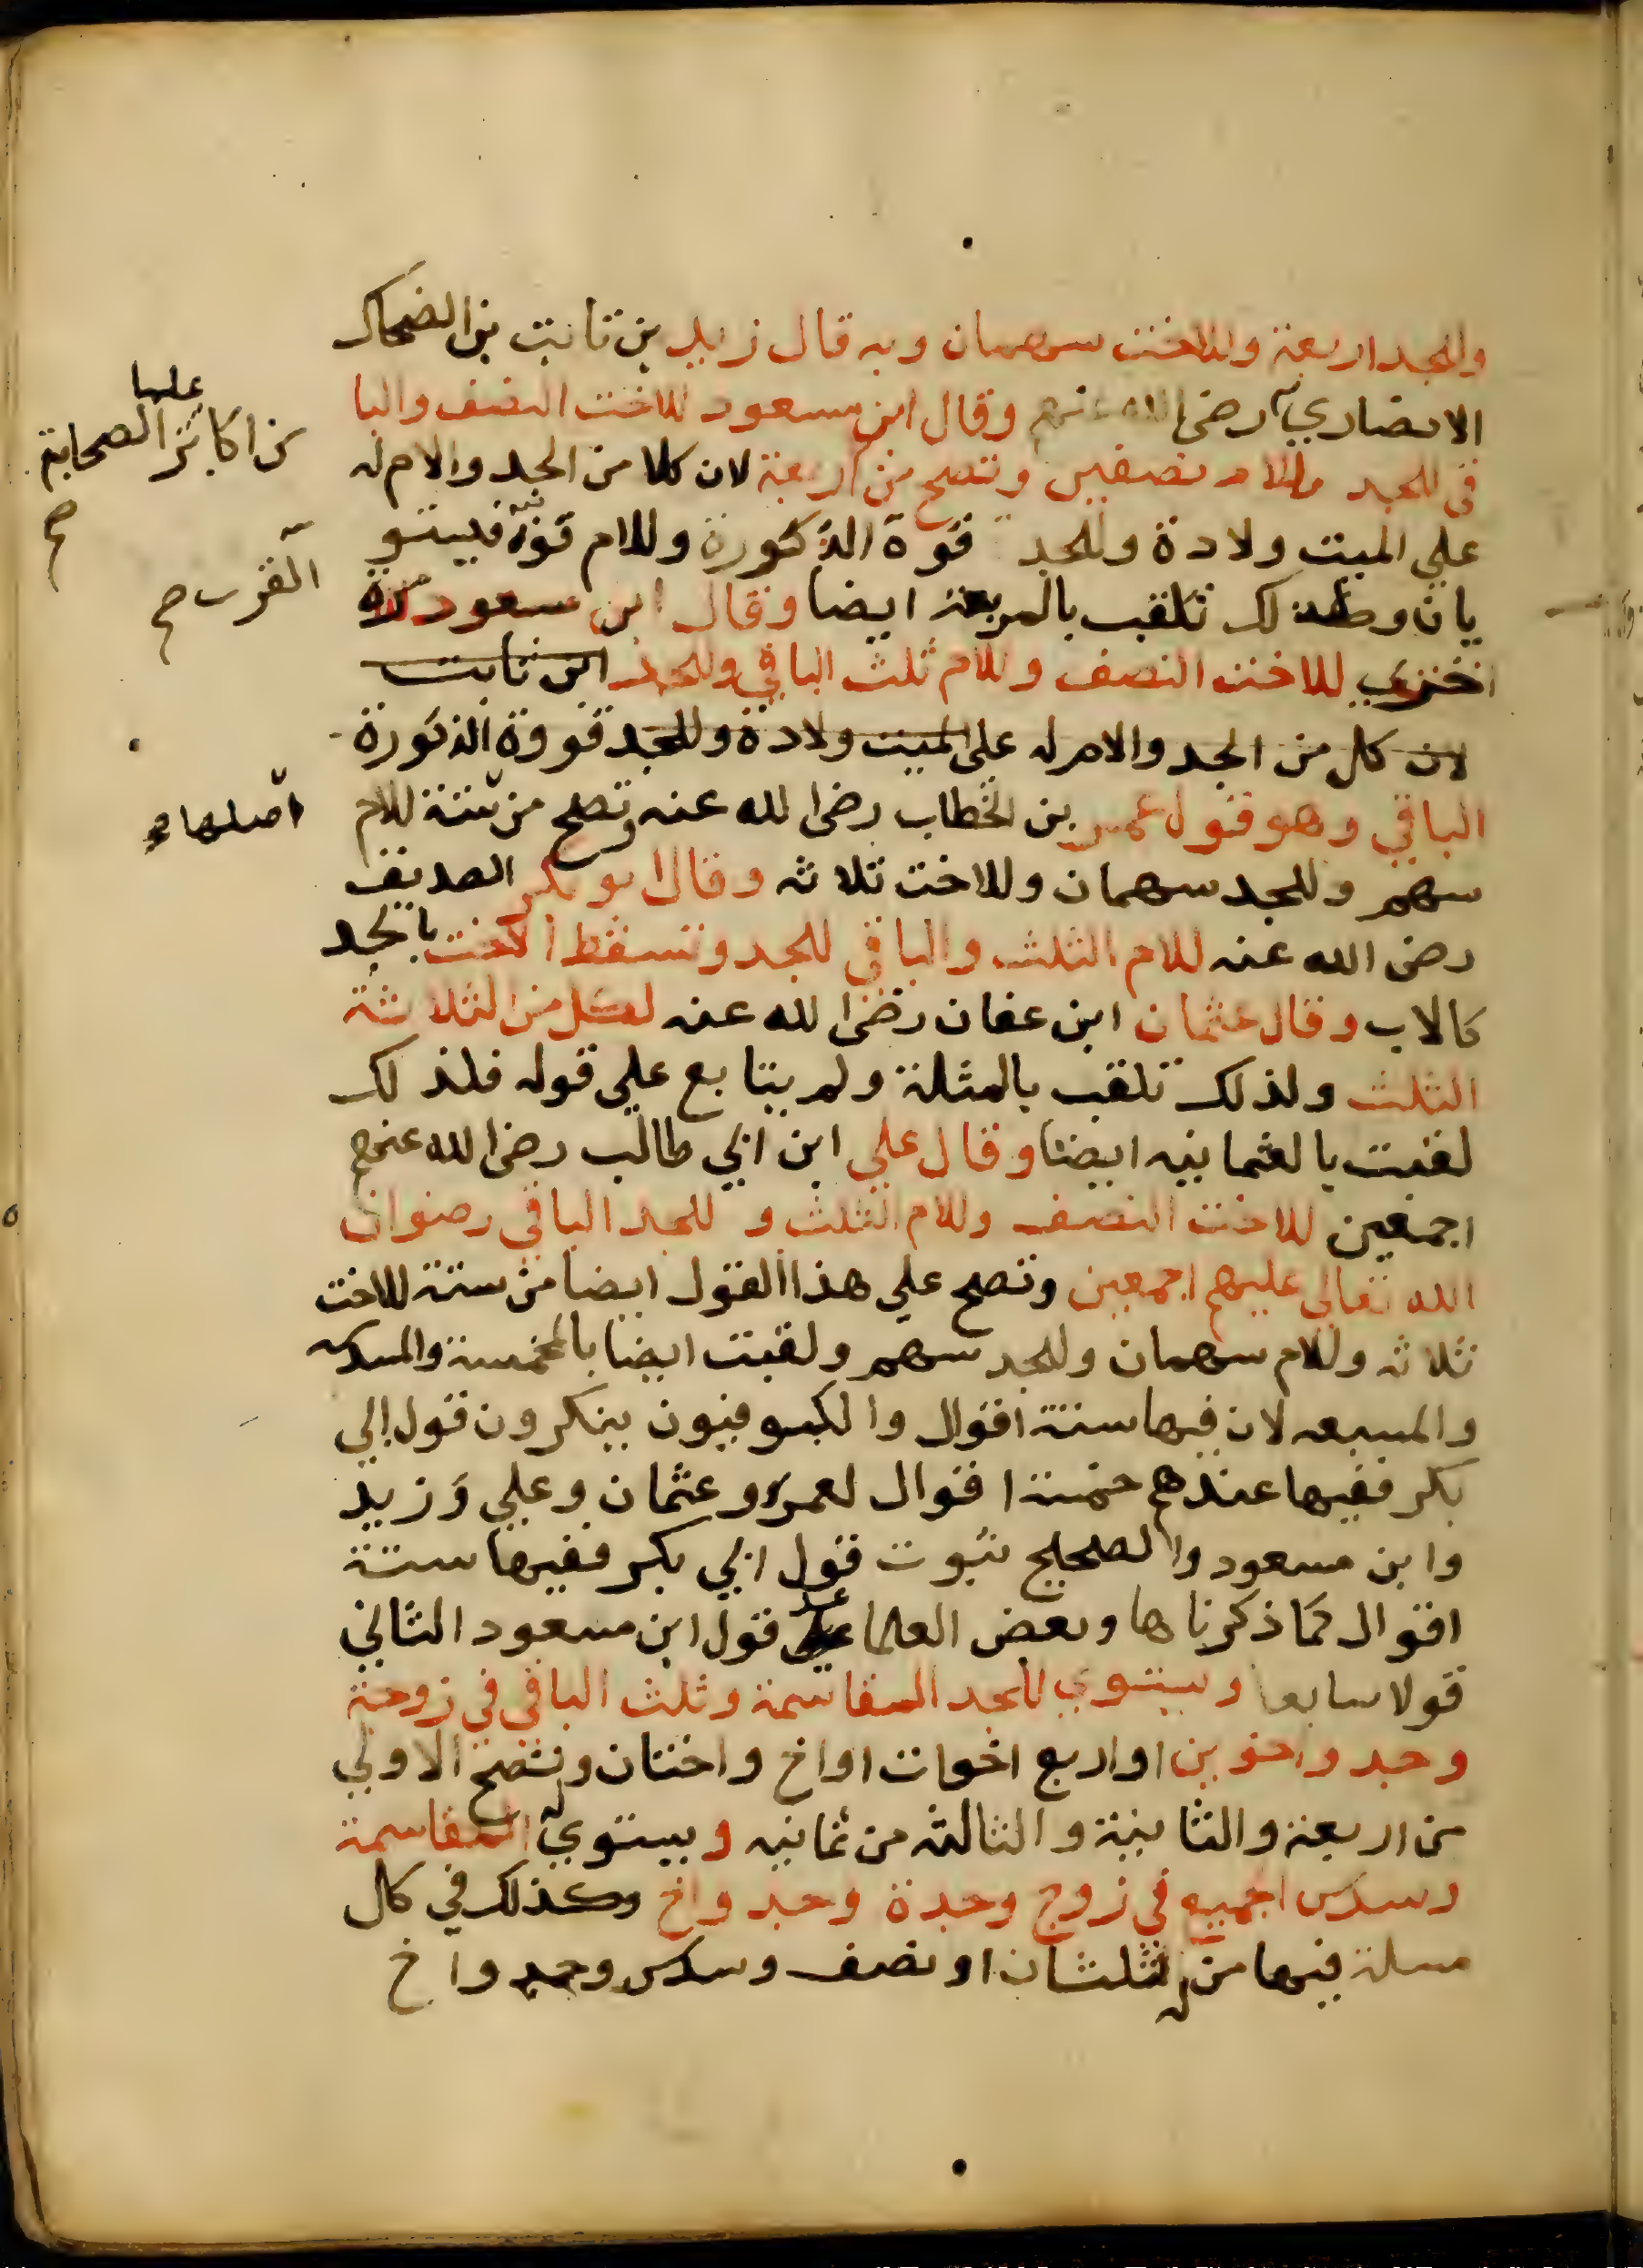 وللجد اربعة وللاخت سهمان وبه قال زيد بن ثابت بن الضحاك
الانصاري رضي الله عنهم وقال ابن مسعود للاخت النصف والبا
قي للجد وللام نصفين وتصح من اربعة لان كلا من الجد والام له
علي الميت ولادة وللجد قوة الذكورة وللام قوة فيستو
يان ولذلك تلقب بالمربعة ايضا وقال ابن مسعود مرة
اخري للاخت النصف وللام ثلث الباقي وللجد ابن ثابت
لان كل من الجد والام له علي الميت ولادة وللجد قووة الذكورة
الباقي وهو قول عمر بن الخطاب رضي الله عنه وتصح من ستة للام
سهم وللجد سهمان وللاخت ثلاثه وقال ابو بكر الصديق
رضي الله عنه للام الثلث والباقي للجد وتسقط الاخت بالجد
كالاب وقال عثمان ابن عفان رضي الله عنه لكل من الثلاثة
الثلث ولذلك تلقب بالمثلثة ولم يتابع علي قوله فلذلك
لقبت بالعثمانيه ايضا وقال علي ابن ابي طالب رضي الله عنهم
اجمعين للاخت النصف وللام الثلث وللجد الباقي رضوان
الله تعالي عليهم اجمعين وتصح علي هذا القول ايضا من ستة للاخت
ثلاثه وللام سهمان وللجد سهم ولقبت ايضا بالمخمسة والمسدسه
والمسبعه لان فيها ستة اقوال والكوفيون ينكرون قول ابي
بكر ففيها عندهم خمسة اقوال لعمر وعثمان وعلي وزيد
وابن مسعود والصحيح ثبوت قول ابي بكر ففيها ستة
اقوال كما ذكرناها وبعض العلما عد قول ابن مسعود الثاني
قولا سابعا ويستوي للجد المقاسمة وثلث الباقي في زوجة
وجد واخوين او اربع اخوات او اخ واختان وتصح الاولي
من اربعة والثانية والثالثة من ثمانيه ويستوي له المقاسمة
وسدس الجميع في زوج وجدة وجد واخ وكذلك في كل
مسلة فيها من له ثلثان او نصف وسدس وجد واخ
عليا
من اكابر الصحابة
صح
القرب صح
اصلها